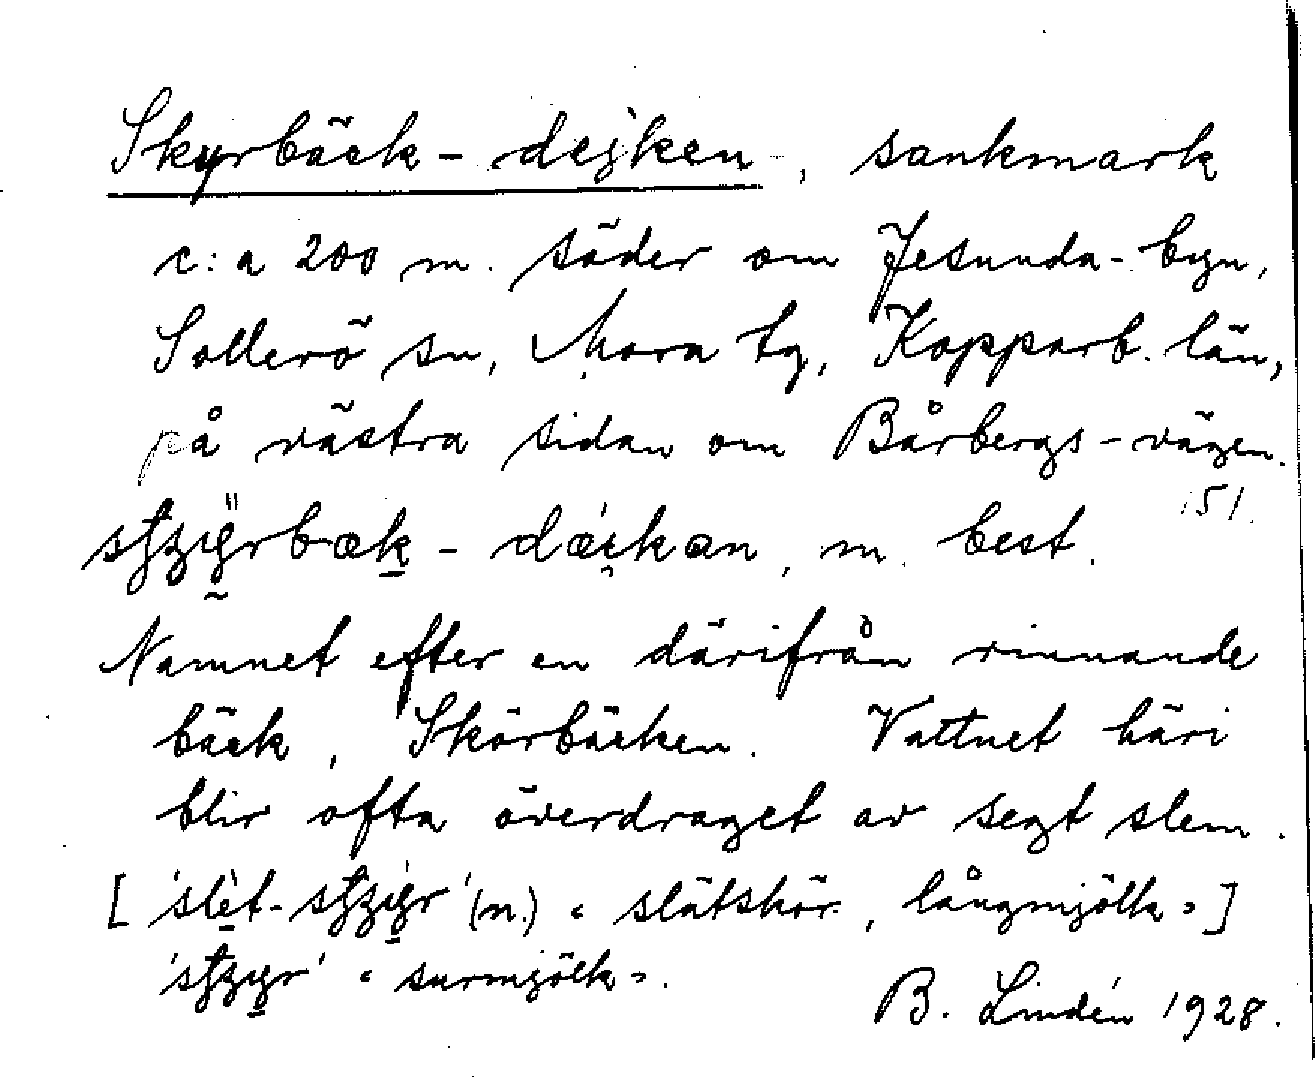 Skyrbäck-dejken, sankmark
c:a 200 m. söder om Jesunda-byn,
Sollerö sn, Mora tg, Kopparb. län,
på västra sidan om Bårbergs-vägen.
151.
bæk - dæikan, m. best.
Namnet efter en därifrån rinnande
bäck, Skörbäcken. Vattnet häri
blir ofta överdraget av segt slem.
(n.) « slätskör, långmjölk »]
« surmjölk ».
B. Lindén 1928.